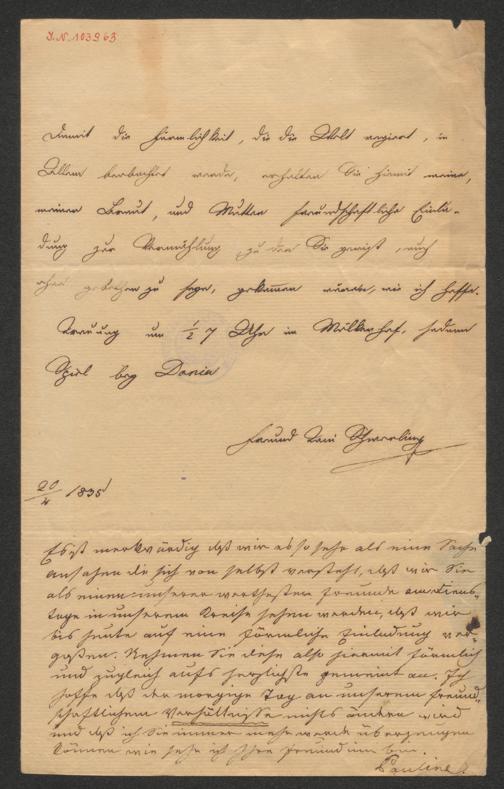 I.N. 103963
Damit die Förmlichkeit, die die Welt regiert, in
Allem beobachtet werde, erhalten Sie hiemit meine,
meiner Braut, und Mutter freundschaftliche Einla-
dung zur Vermählung zu der Sie gewiß, auch
ohne gebethen zu seyn, gekommen wären, wie ich hoffe.
Trauung um ½ 7 Uhr im Mölkerhof, sodann
Spiel bey Doria
Freund Toni
20/4 1835
Es ist merkwürdig daß wir es so sehr als eine Sache
ansahen die sich von selbst versteht, daß wir Sie
als einen unserer werthesten Freunde am Diens-
tage in unserem Kreise sehen werden, daß wir
bis heute auf eine förmliche Einladung ver-
gaßen. Nehmen Sie diese also hiermit förmlich
und zugleich aufs herzlichste gemeint an. Ich
hoffe daß der morgige Tag an unserem freund-
schaftlichem Verhältnisse nichts ändern wird
und daß ich Sie immer mehr werde überzeugen
können wie sehr ich Ihre Freundinn bin.
Pauline